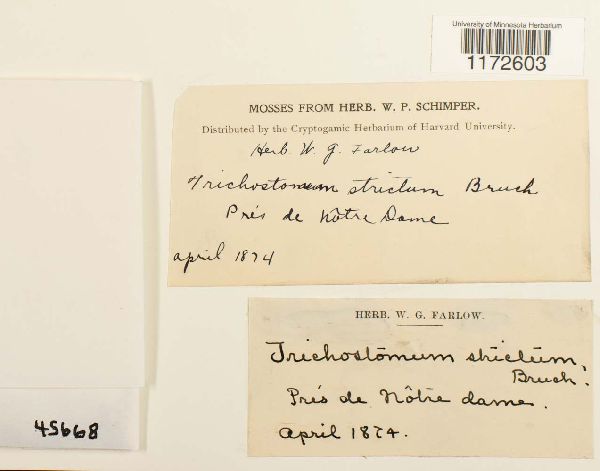 University of Minnesota Herbarium
1172603
MOSSES FROM HERB. W. P. SCHIMPER.
Distributed by the Cryptogamic Herbarium of Harvard University.
Herb. W. G. Farlow
Trichostomum strictum Bruch
Prés de Nôtre Dame
april 1874
HERB. W. G. FARLOW.
Trichostomum strictum,
Bruch.
Prés de Nôtre dame.
April 1874.
45668